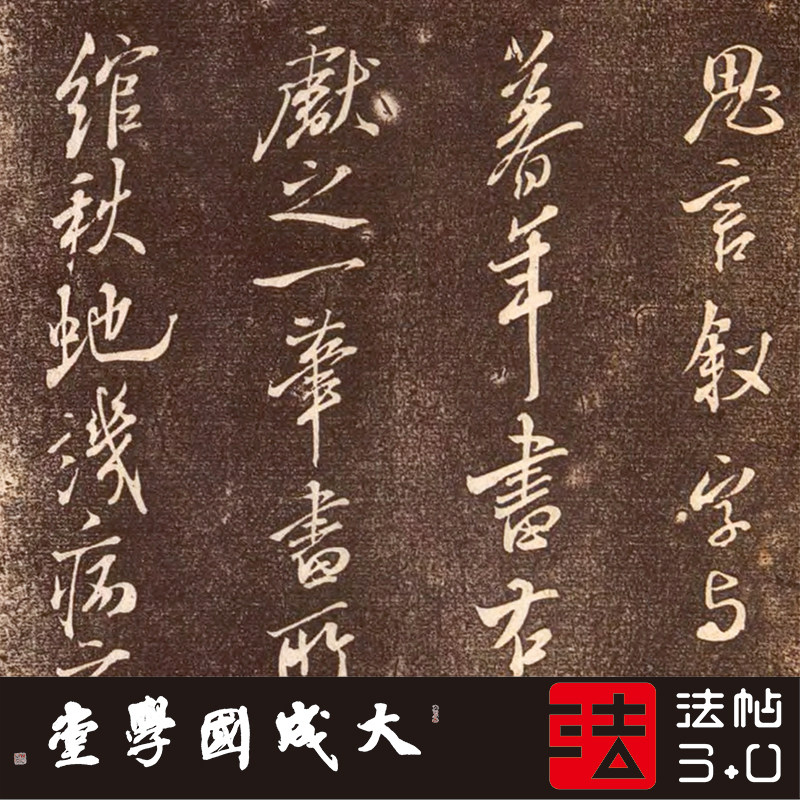 思言叙字与
暮年書右
獻之一筆書所
綰秋虵譏病
大成國學堂
法
法帖
3.0